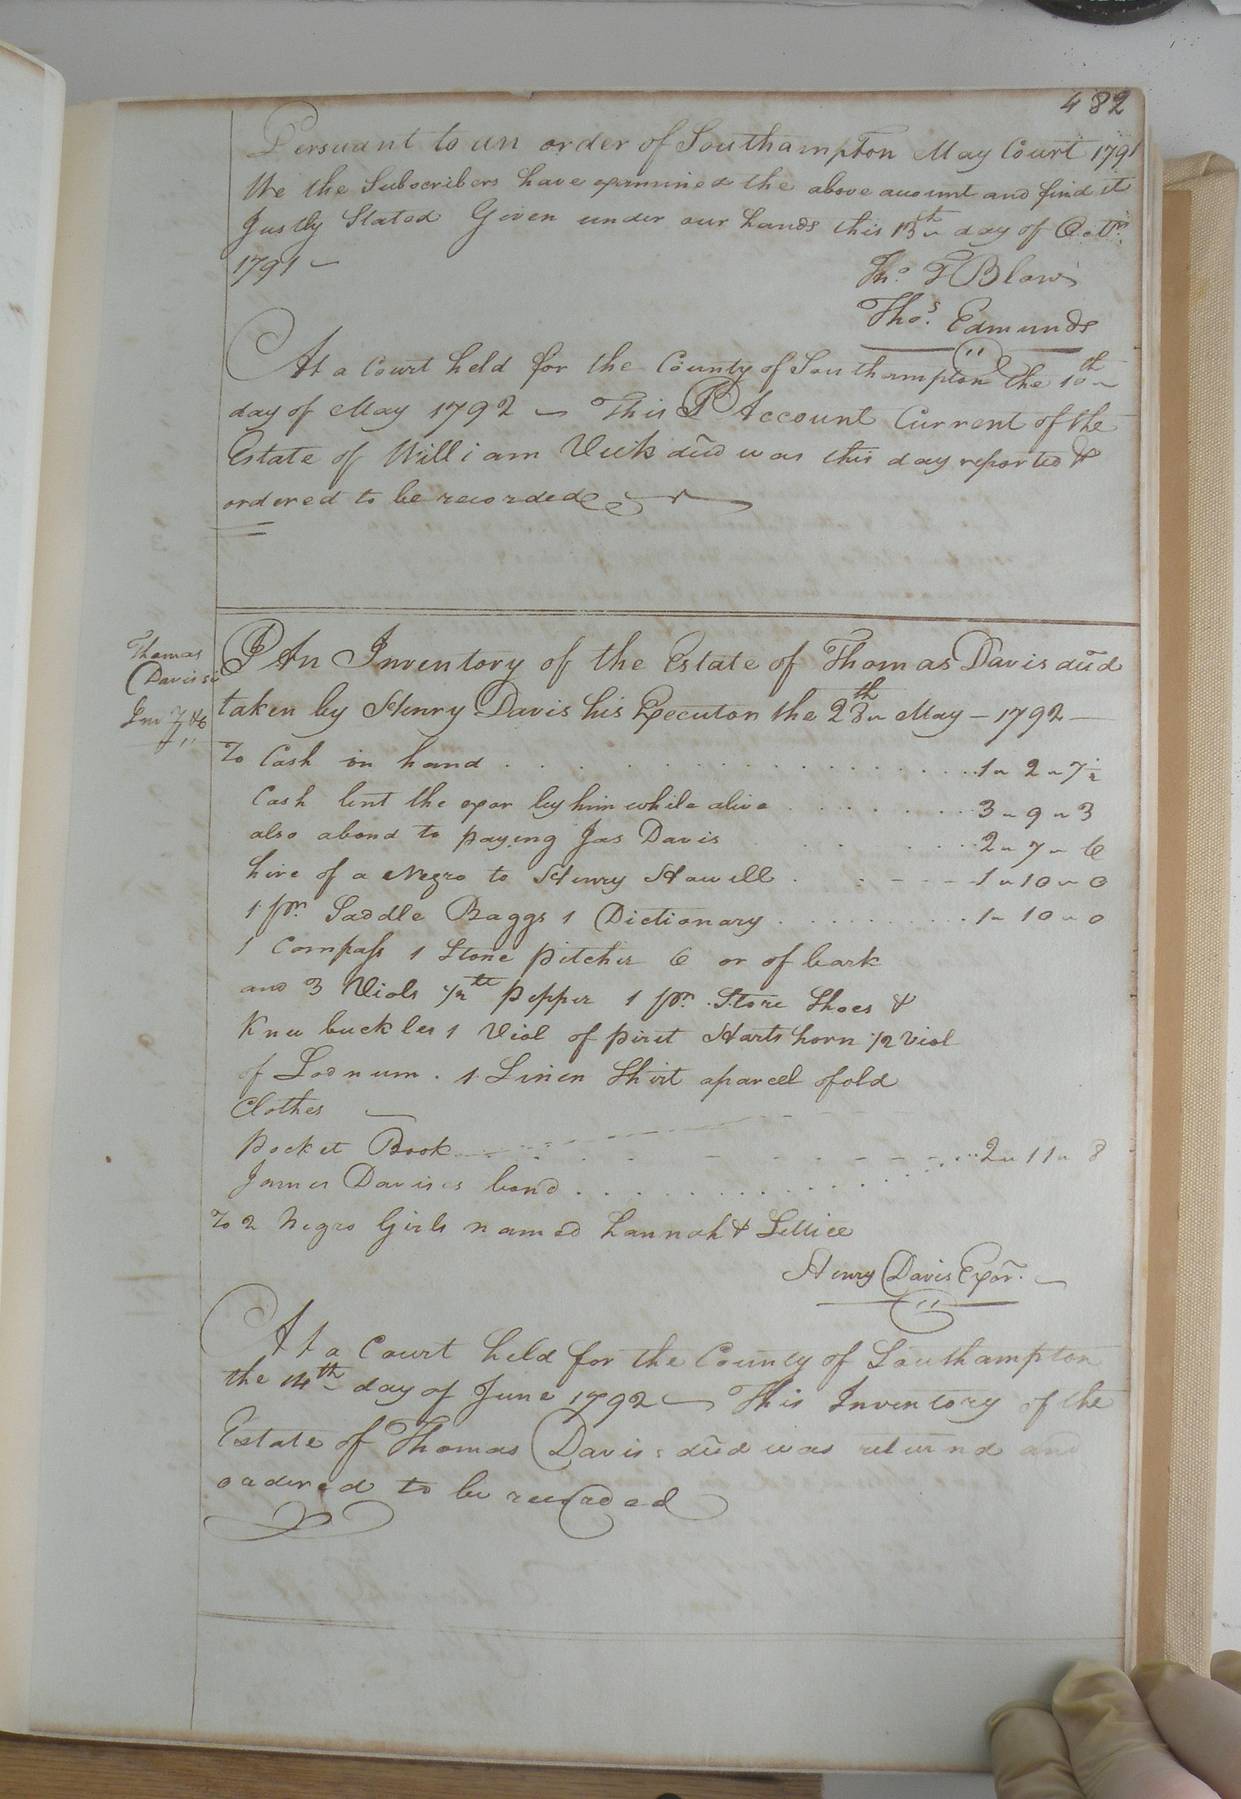 482
Persuant to an order of Southampton May Court 1791
We the Subscribers have examined the above account and find it
Justly Stated Given under our hands this 13th day of Octr.
1791
Tho. F Blow
Thos. Edmunds
At a Court held for the County of Southampton the 10th
day of May 1792 This Account Current of the
Estate of William Vick decd was this day reported &
ordered to be recorded
Thomas
Davis's
Inv
An Inventory of the Estate of Thomas Davis decd
taken by Henry Davis his Executor the 28th May - 1792
To Cash in hand 1 " 2 " 7 1/2
Cash lent the exor by him while alive 3 " 9 " 3
also abond to paying Jas Davis 2 " 7 " 6
hire of a Negro to Henry Howell 1 " 10 " 0
1 pr. Saddle Baggs 1 Dictionary 1 " 10 " 0
1 Compass 1 Stone pitcher 6 or of bark
and 3 Viols 1/2 pepper 1 pr. Store Shoes &
Knee buckles 1 Viol of pirit Harts horn 1/2 Viol
of Lodnum. 1 Linen Shirt aparcel of old
Clothes
pocket Book 2 " 11 " 8
James Davises bond
To 2 Negro Girls named hannah & Lettice
Henry Davis Exor.
At a Court held for the County of Southampton
the 14th day of June 1792 This Inventory of the
Estate of Thomas Davis decd was returnd and
oadered to be recorded